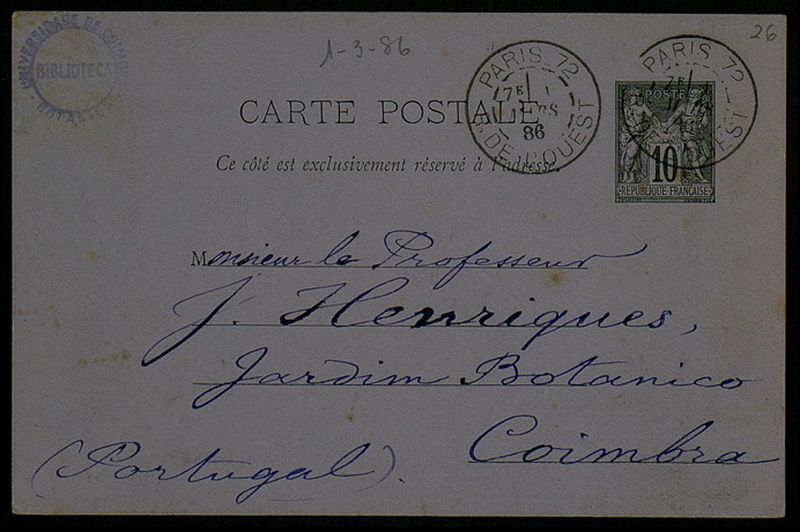 UNIVERSIDADE DE COIMBRA
BIBLIOTECA
BOTANICA
1-3-86
26
PARIS 72
7E 1
RS
86
R. DE L'OUEST
PARIS 72
7E
OUEST
POSTE
10
REPUBLIQUE FRANÇAISE
CARTE POSTALE
Ce côté est exclusivement réservé à l'adresse.
Monsieur le Professeur
J. Henriques,
Jardim Botanico
Coimbra
(Portugal).